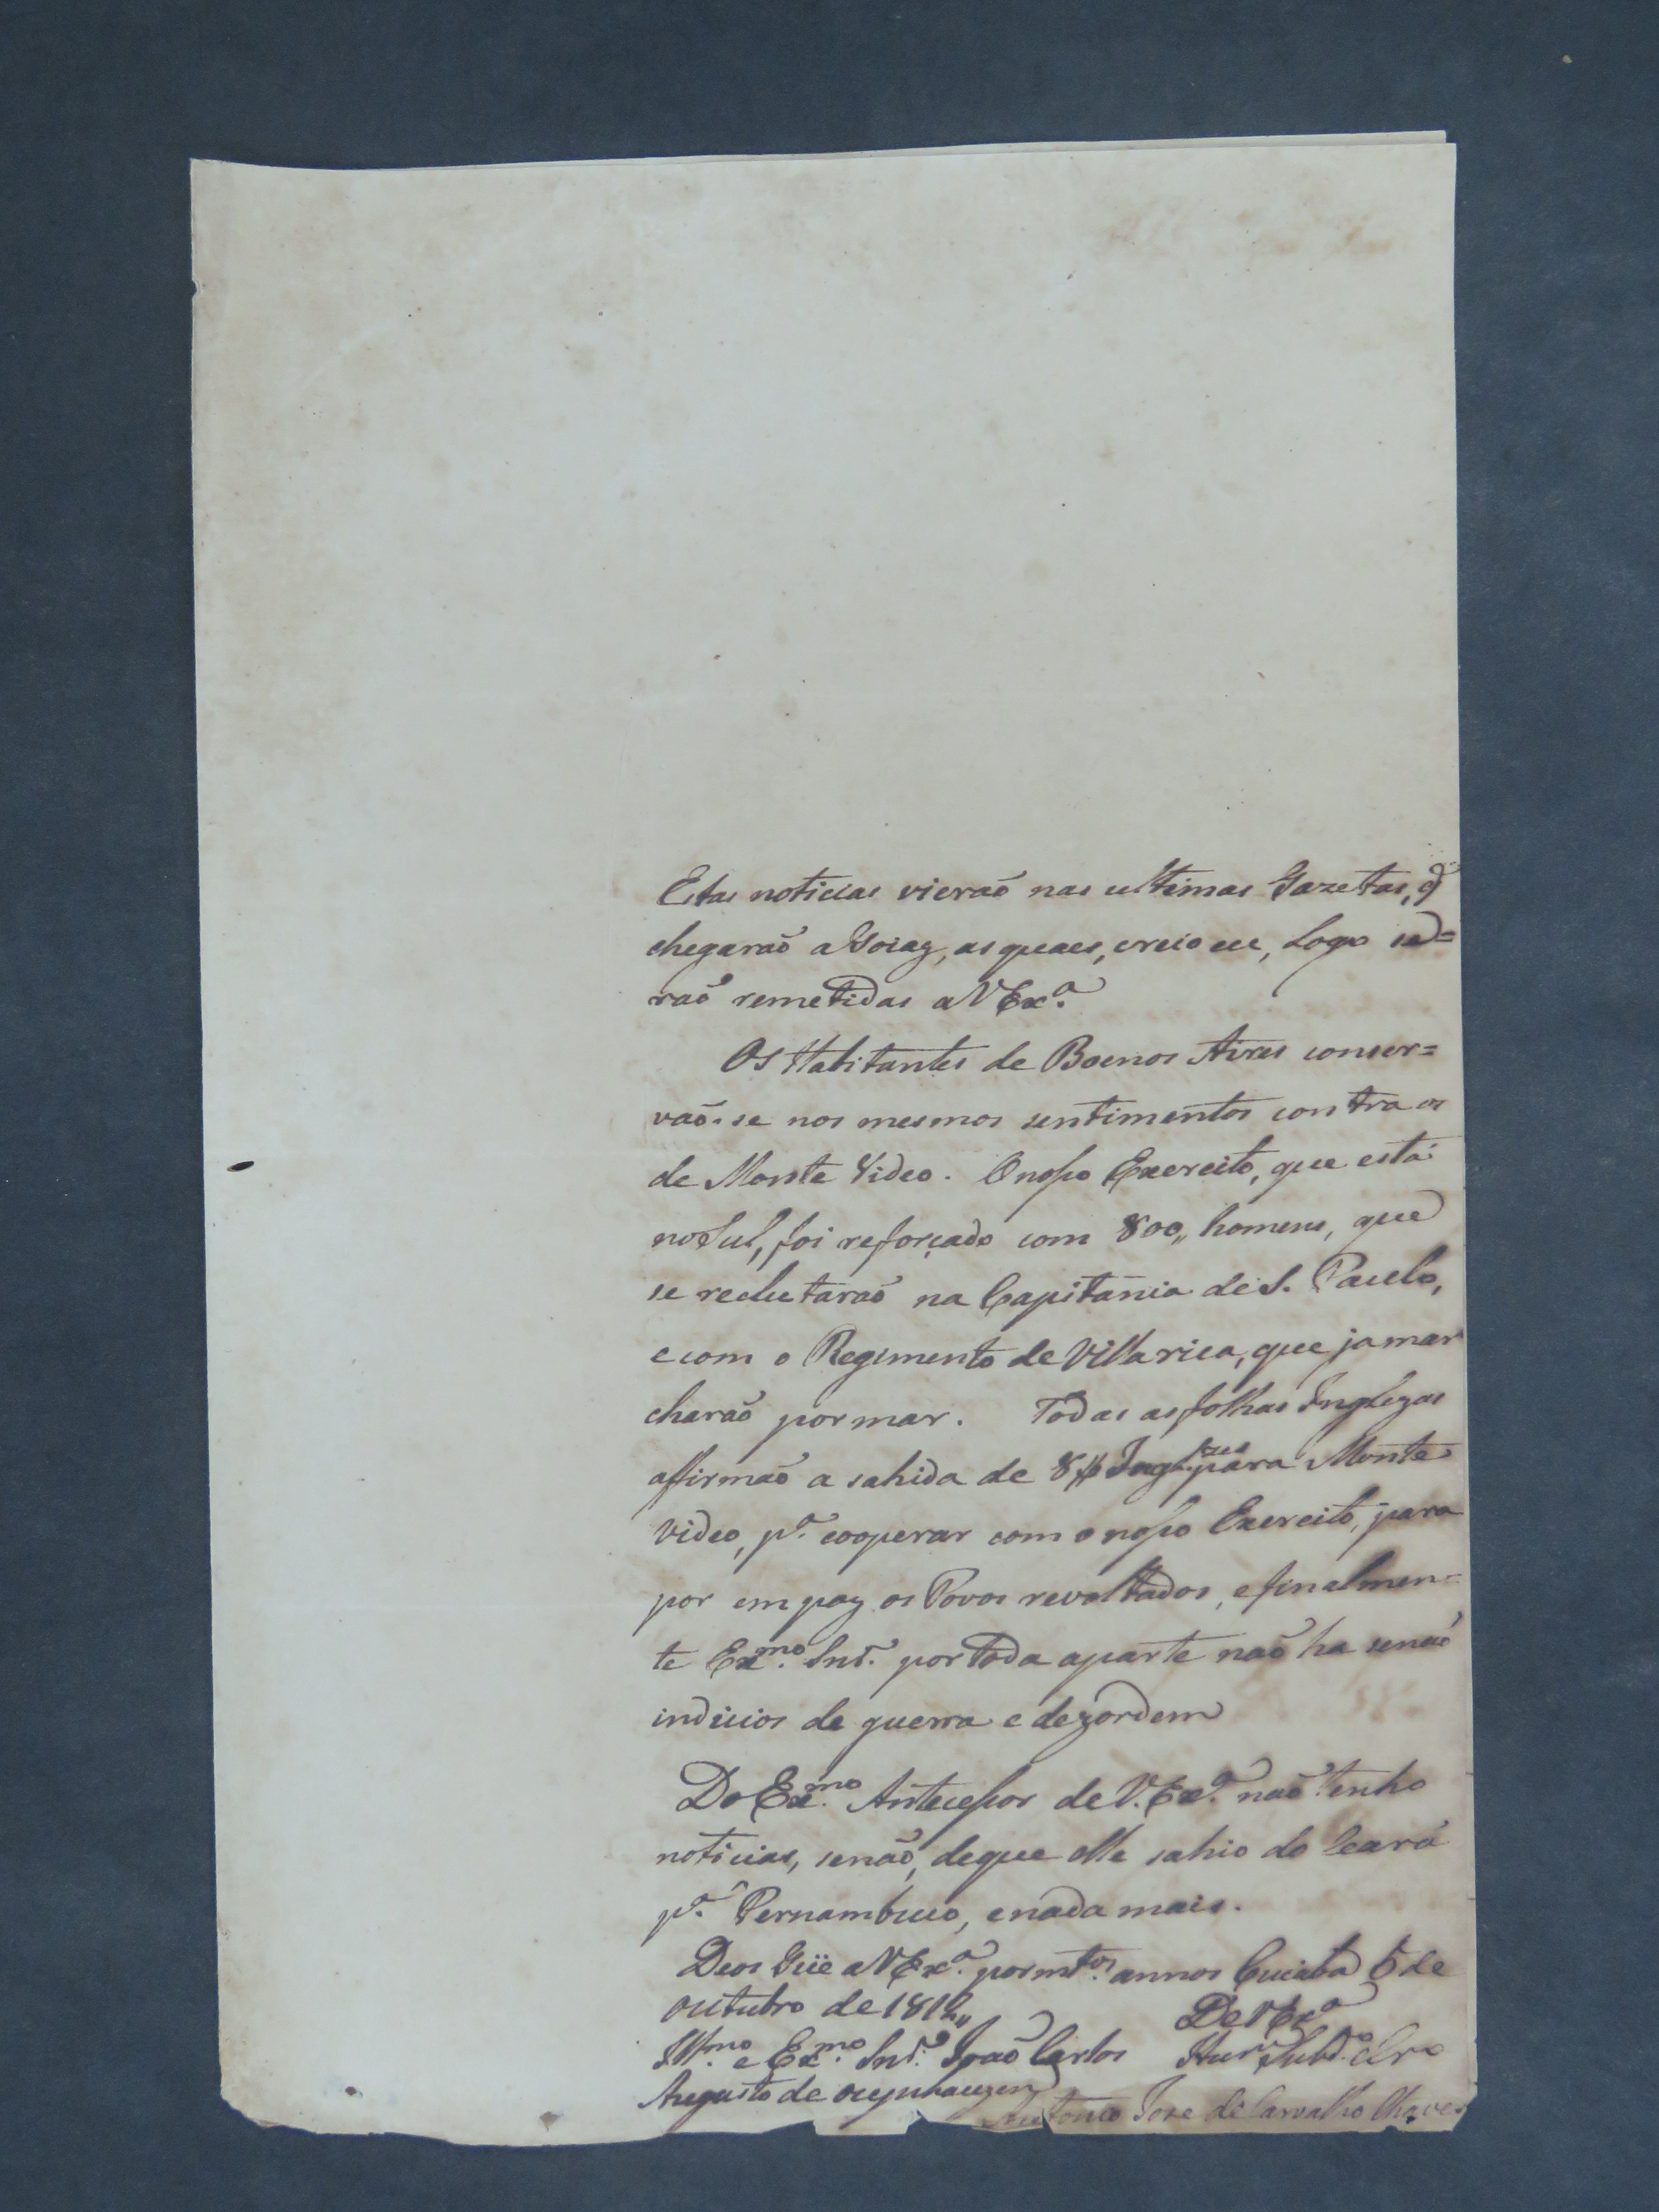 Estas noticias vieraõ nas ultimas Gazetas, q̃
chegaraõ a Goiaz, as quaes, creio eu, logo se=
raõ remetidas a V Ex.ª
Os Habitantes de Boenos Aires conser=
vaõ-se nos mesmos sentimentos contra os
de Monte Video. O nosso Exercito, que está
no Sul, foi reforçado com 800,, homens, que
se reclutaraõ na Capitania de S. Paulo,
e com o Regimento de Villa rica, que ja mar
charaõ por mar. Todas as folhas Inglezas
affirmaõ a sahida de 8 Ingl.zes para Monte
video, p.ª cooperar com o nosso Exercito, para
por em paz os Povos revoltados, e finalmen=
te Ex.mo Snr. por toda a parte naõ ha senaõ
indicios de guerra e dezordem
Do Ex.mo Antecessor de V. Ex.ª naõ tenho
noticias, senaõ, de que elle sahio do Ceará
p.ª Pernambuco, e nada mais.
Deos Gũe a V Ex.ª por m.tos annos Cuiabá 5 de
outubro de 1812,, De V Ex.ª
Ill.mo e Ex.mo Snr. Joaõ Carlos Subd.º
Augusto de oeynhauzen
Antonio Joze de Carvalho Chaves